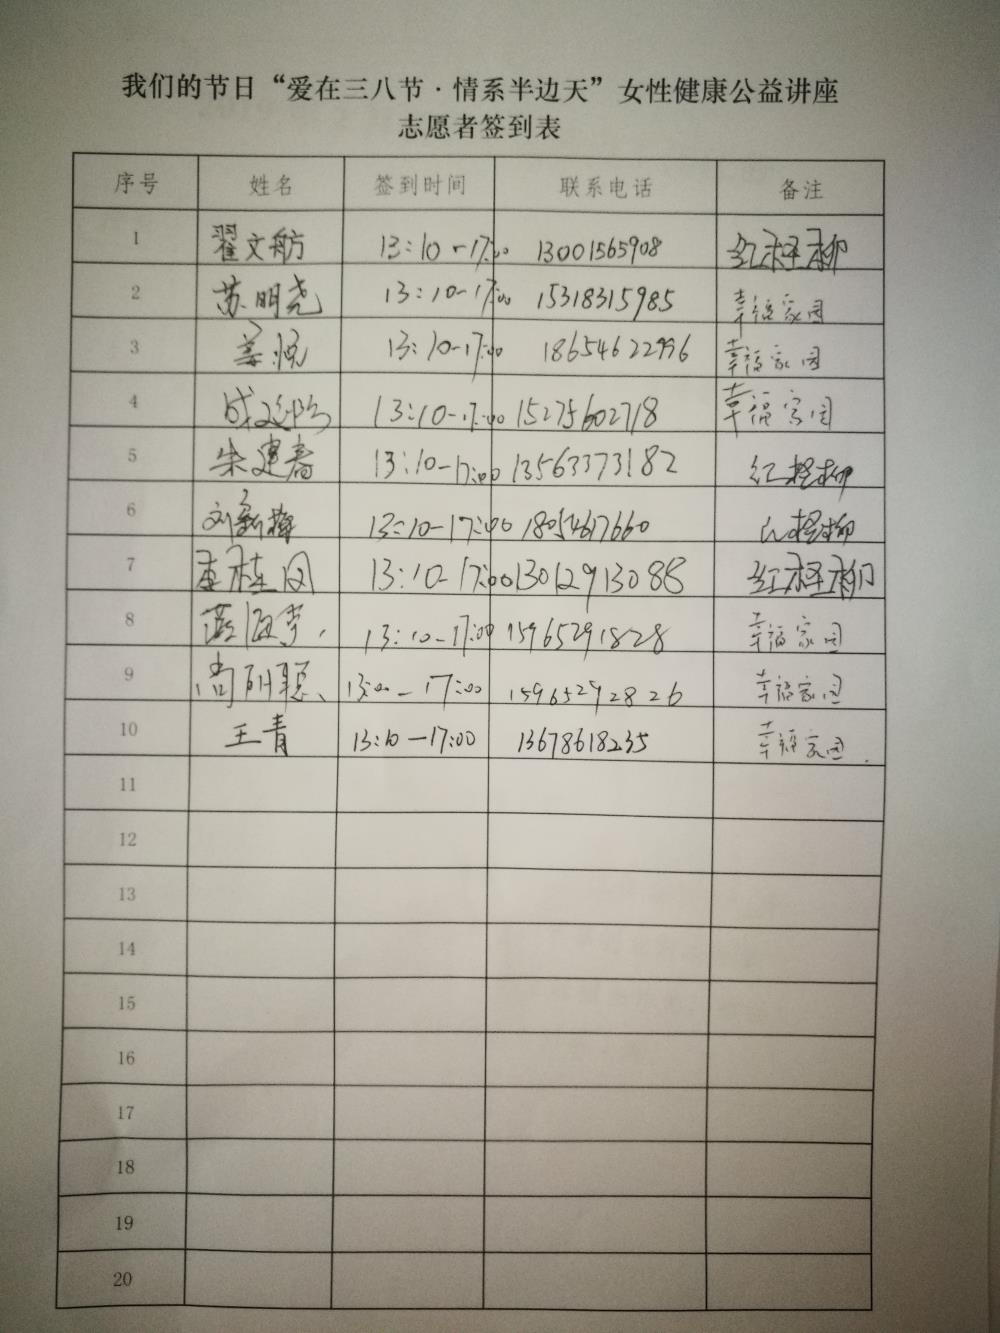 我们的节日“爱在三八节·情系半边天”女性健康公益讲座
志愿者签到表
序号 姓名 签到时间 联系电话 备注
1 翟文舫 13:10-17:00 13001565908 红柽柳
2 苏明尧 13:10-17:00 15318315985 幸福家园
3 姜悦 13:10-17:00 18654622996 幸福家园
4 成延 13:10-17:00 15275602718 幸福家园
5 朱建春 13:10-17:00 13563373182 红柽柳
6 刘新梅 13:10-17:00 18054617660 红柽柳
7 桂凤 13:10-17:00 13012913088 红柽柳
8 13:10-17:00 15965291828 幸福家园
9 尚明聪 13:00-17:00 15965292826 幸福家园
10 王青 13:10-17:00 13678618235 幸福家园
11
12
13
14
15
16
17
18
19
20